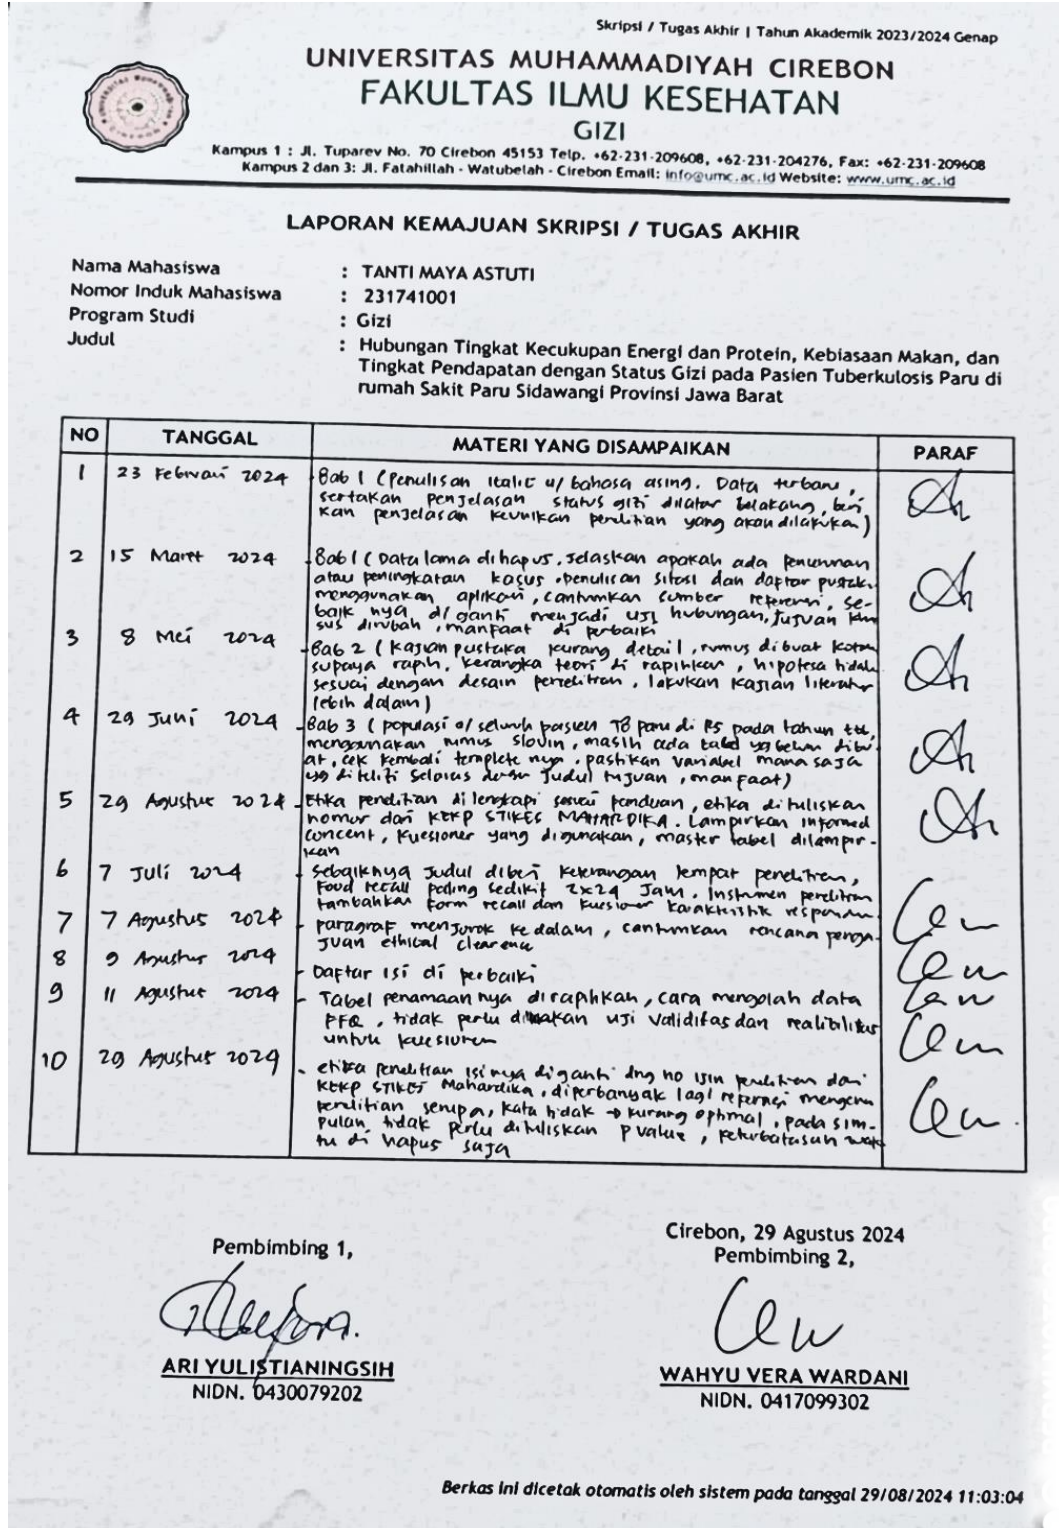 Skripsi / Tugas Akhir | Tahun Akademik 2023/2024 Genap
UNIVERSITAS MUHAMMADIYAH CIREBON
FAKULTAS ILMU KESEHATAN
GIZI
Kampus 1 : Jl. Tuparev No. 70 Cirebon 45153 Telp. +62-231-209608, +62-231-204276, Fax: +62-231-209608
Kampus 2 dan 3: Jl. Fatahillah - Watubelah - Cirebon Email: info@umc.ac.id Website: www.umc.ac.id
LAPORAN KEMAJUAN SKRIPSI / TUGAS AKHIR
Nama Mahasiswa : TANTI MAYA ASTUTI
Nomor Induk Mahasiswa : 231741001
Program Studi : Gizi
Judul : Hubungan Tingkat Kecukupan Energi dan Protein, Kebiasaan Makan, dan
Tingkat Pendapatan dengan Status Gizi pada Pasien Tuberkulosis Paru di
rumah Sakit Paru Sidawangi Provinsi Jawa Barat
NO TANGGAL MATERI YANG DISAMPAIKAN PARAF
1 23 Februari 2024 - Bab 1 (Penulisan italic u/ bahasa asing. Data terbaru,
sertakan penjelasan status gizi dilatar belakang, beri
kan penjelasan keunikan penelitian yang akan dilakukan)
2 15 Maret 2024 - Bab 1 (Data lama dihapus, jelaskan apakah ada penurunan
atau peningkatan kasus, penulisan sitasi dan daftar pustaka
menggunakan aplikasi, cantumkan sumber referensi, se-
baik nya di ganti menjadi uji hubungan, tujuan khu
sus dirubah, manfaat di perbaiki
3 8 Mei 2024 - Bab 2 (kajian pustaka kurang detail, rumus dibuat kotak
supaya rapih, kerangka teori di rapihkan, hipotesa tidak
sesuai dengan desain penelitian, lakukan kajian literatur
lebih dalam)
4 29 Juni 2024 - Bab 3 (populasi o/ seluruh pasien TB paru di RS pada tahun ttt,
menggunakan rumus slovin, masih ada tabel yg belum dibu
at, cek kembali templete nya, pastikan variabel mana saja
yg diteliti selaras dengan judul tujuan, manfaat)
5 29 Agustus 2024 - Etika penelitian di lengkapi sesuai panduan, etika dituliskan
nomor dari KEKP STIKES MAHARDIKA. Lampirkan informed
concent, kuesioner yang digunakan, master tabel dilampir-
kan
6 7 Juli 2024 - Sebaiknya judul diberi keterangan tempat penelitian,
Food recall paling sedikit 2x24 Jam. Instrumen penelitian
tambahkan form recall dan kuesioner karakteristik responden
7 7 Agustus 2024 - paragraf menjorok ke dalam, cantumkan rencana penga-
juan ethical clearence
8 9 Agustus 2024 - Daftar isi di perbaiki
9 11 Agustus 2024 - Tabel penamaan nya dirapihkan, cara mengolah data
FFQ, tidak perlu uji validitas dan realibilitas
untuk kuesioner
10 29 Agustus 2024 - etika penelitian isi nya diganti dng no izin penelitian dari
KEKP STIKES Mahardika, diperbanyak lagi referensi mengenai
penelitian serupa, kata tidak → kurang optimal, pada sim-
pulan tidak perlu dituliskan P value, keterbatasan wak
tu di hapus saja
Cirebon, 29 Agustus 2024
Pembimbing 1, Pembimbing 2,
ARI YULISTIANINGSIH WAHYU VERA WARDANI
NIDN. 0430079202 NIDN. 0417099302
Berkas ini dicetak otomatis oleh sistem pada tanggal 29/08/2024 11:03:04